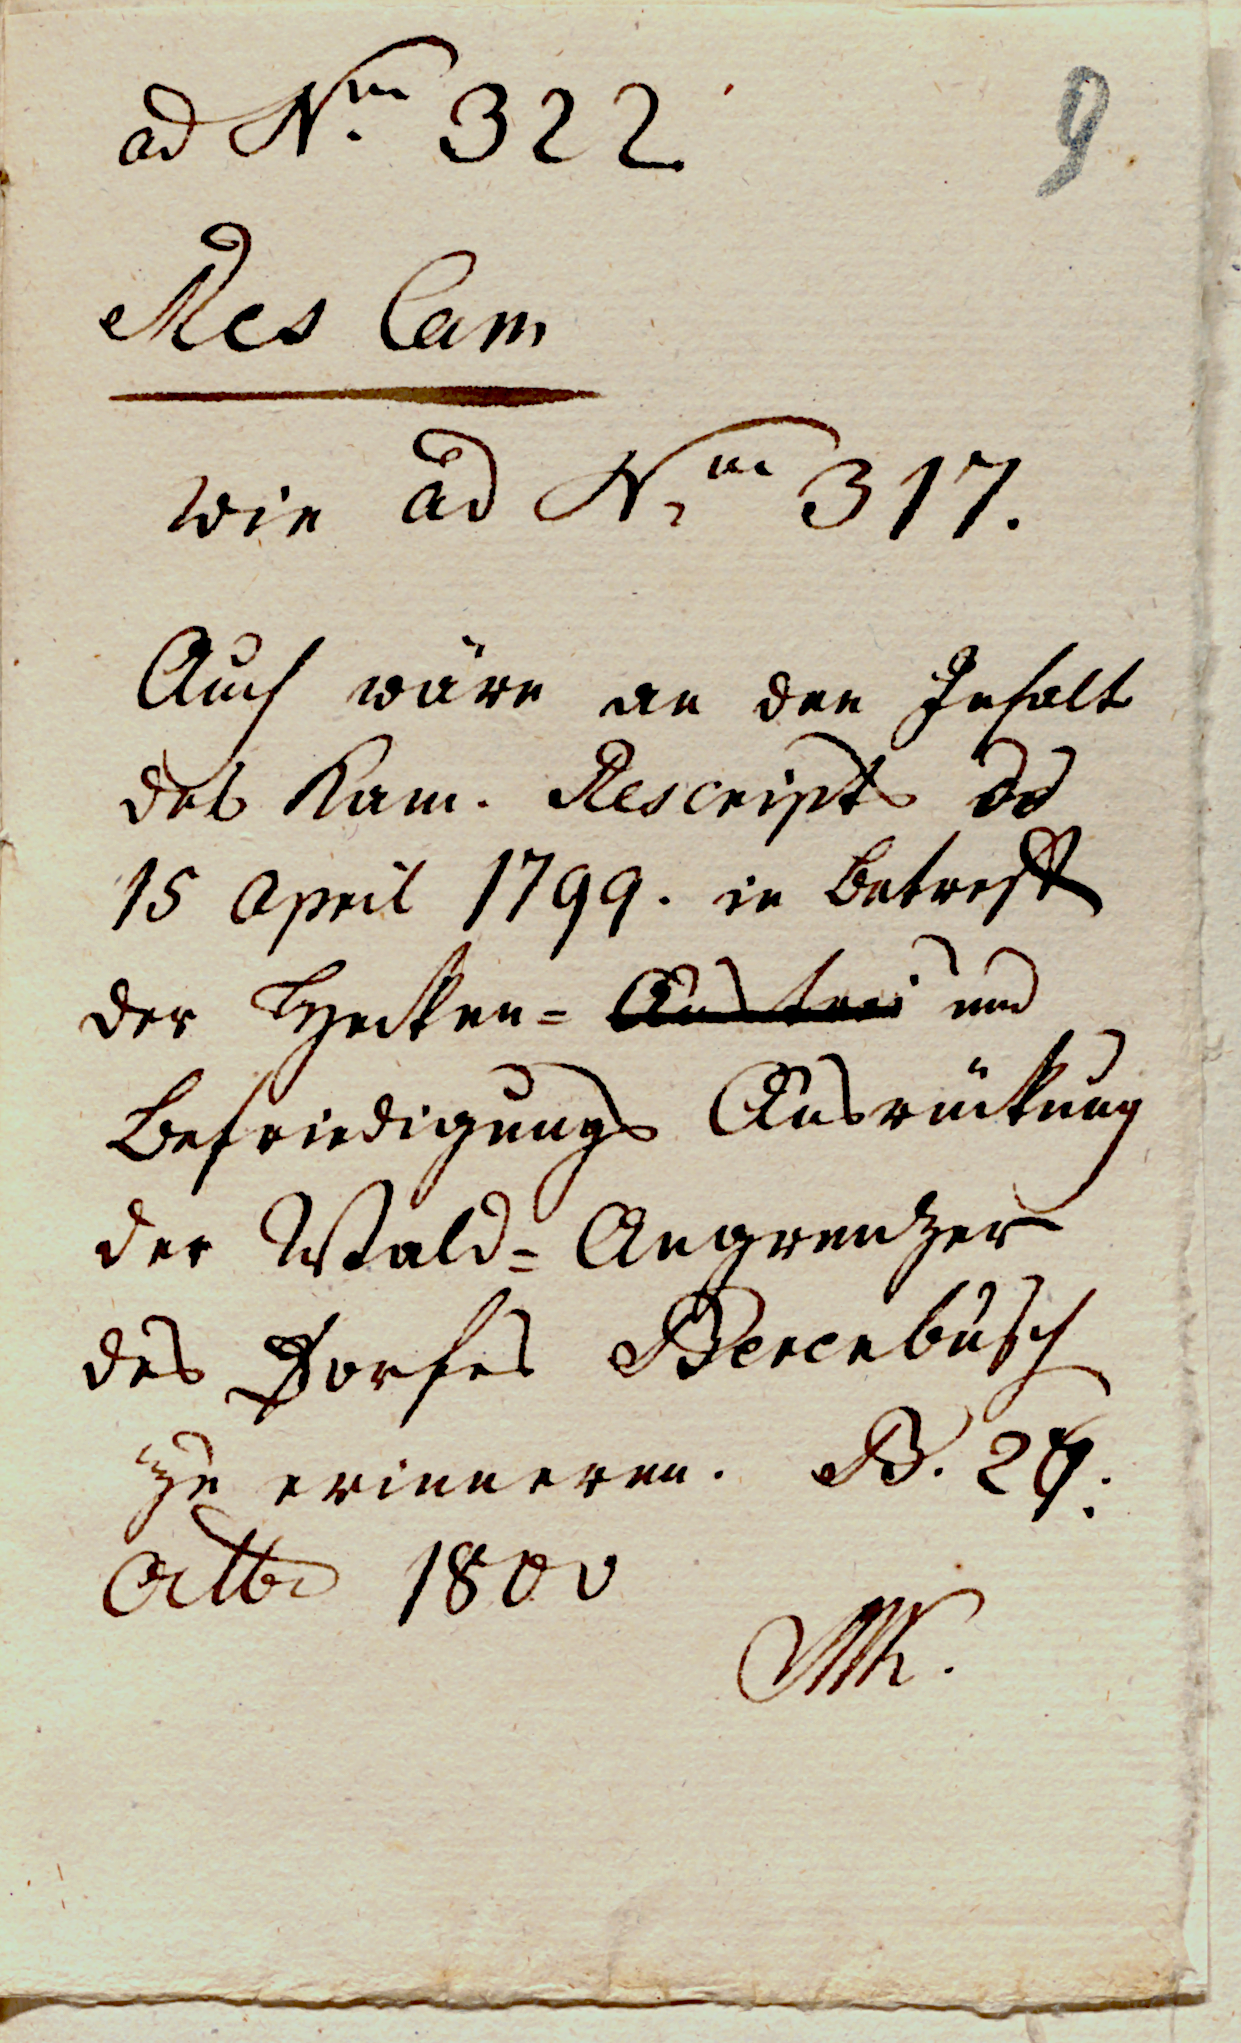 ad N.m 322
9
Res Cam
wie ad N.m 317.
Auch wäre an den Inhalt
des Kam. Rescripts dd
15 April 1799. in Betreff
der Hecken= und
Befriedigungs Ausrückung
der Wald= Angrenzer
des Dorfes
zu erinneren. B. 29.
Octbr 1800